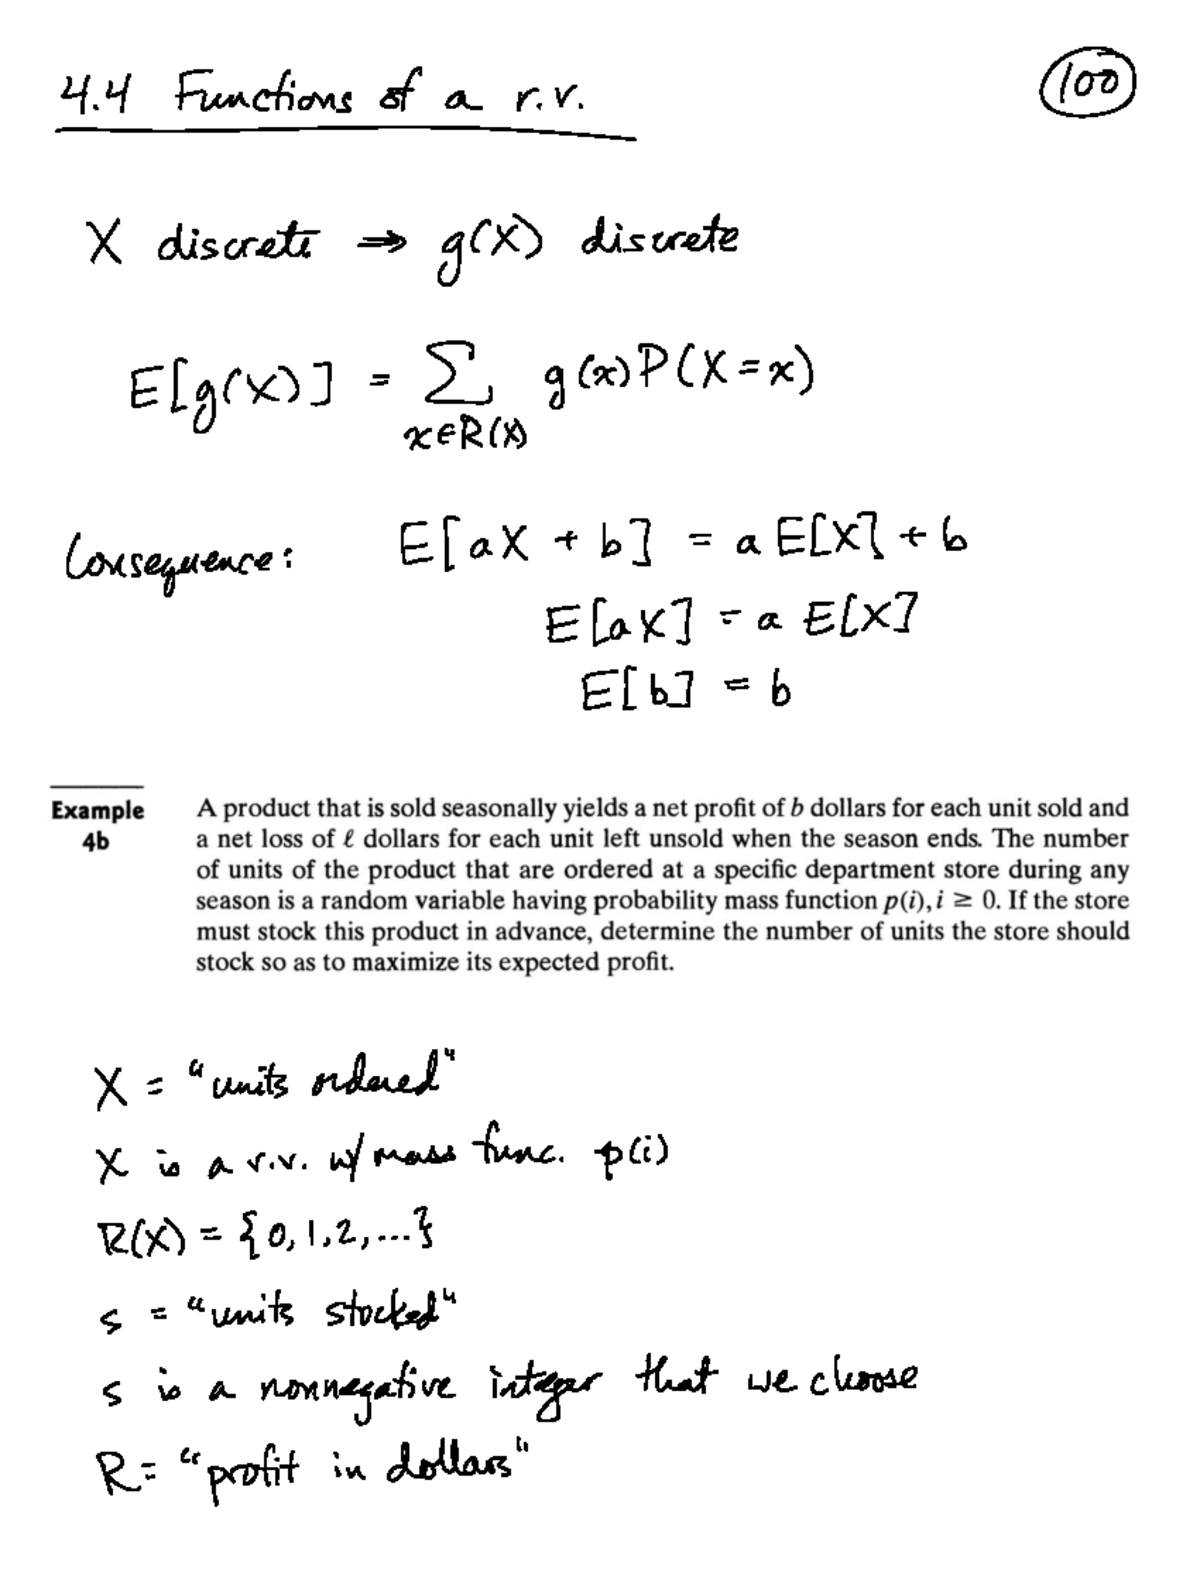 4.4 Functions of a r.v.
100
X discrete ⇒ g(X) discrete
E[g(X)] = ∑ g(x)P(X=x)
x∈R(X)
Consequence: E[aX + b] = a E[X] + b
E[aX] = a E[X]
E[b] = b
Example A product that is sold seasonally yields a net profit of b dollars for each unit sold and
4b a net loss of ℓ dollars for each unit left unsold when the season ends. The number
of units of the product that are ordered at a specific department store during any
season is a random variable having probability mass function p(i), i ≥ 0. If the store
must stock this product in advance, determine the number of units the store should
stock so as to maximize its expected profit.
X = "units ordered"
X is a r.v. w/ mass func. p(i)
R(X) = {0, 1, 2, ...}
s = "units stocked"
s is a nonnegative integer that we choose
R = "profit in dollars"